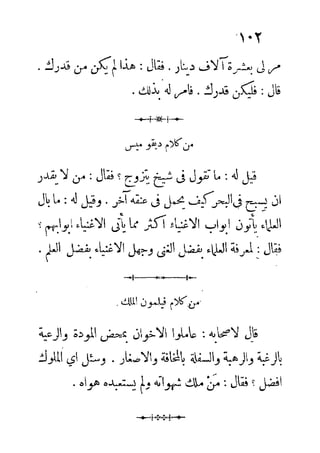 ١٠٢
مر لى بعشرة آلاف دينار . فقال : هذا لم يكن من قدرك .
قال : فليكن قدرك . فامر له بذلك .
من كلام ديقوميس
قيل له : ما تقول فى شيخ يتزوج ؟ فقال : من لا يقدر
ان يسبح فى البحر كيف يحمل فى عنقه آخر . وقيل له : ما بال
العلماء يأتون ابواب الاغنياء اكثر مما يأتى الاغنياء ابوابهم ؟
فقال : لمعرفة العلماء بفضل الغنى وجهل الاغنياء بفضل العلم .
من كلام فيلمون الملك .
قال لاصحابه : عاملوا الاخوان بمحض المودة والرعية
بالرغبة والرهبة والسفلة بالمخافة والاصغار . وسئل اي الملوك
افضل ؟ فقال : مَنْ ملك شهواته ولم يستعبده هواه .